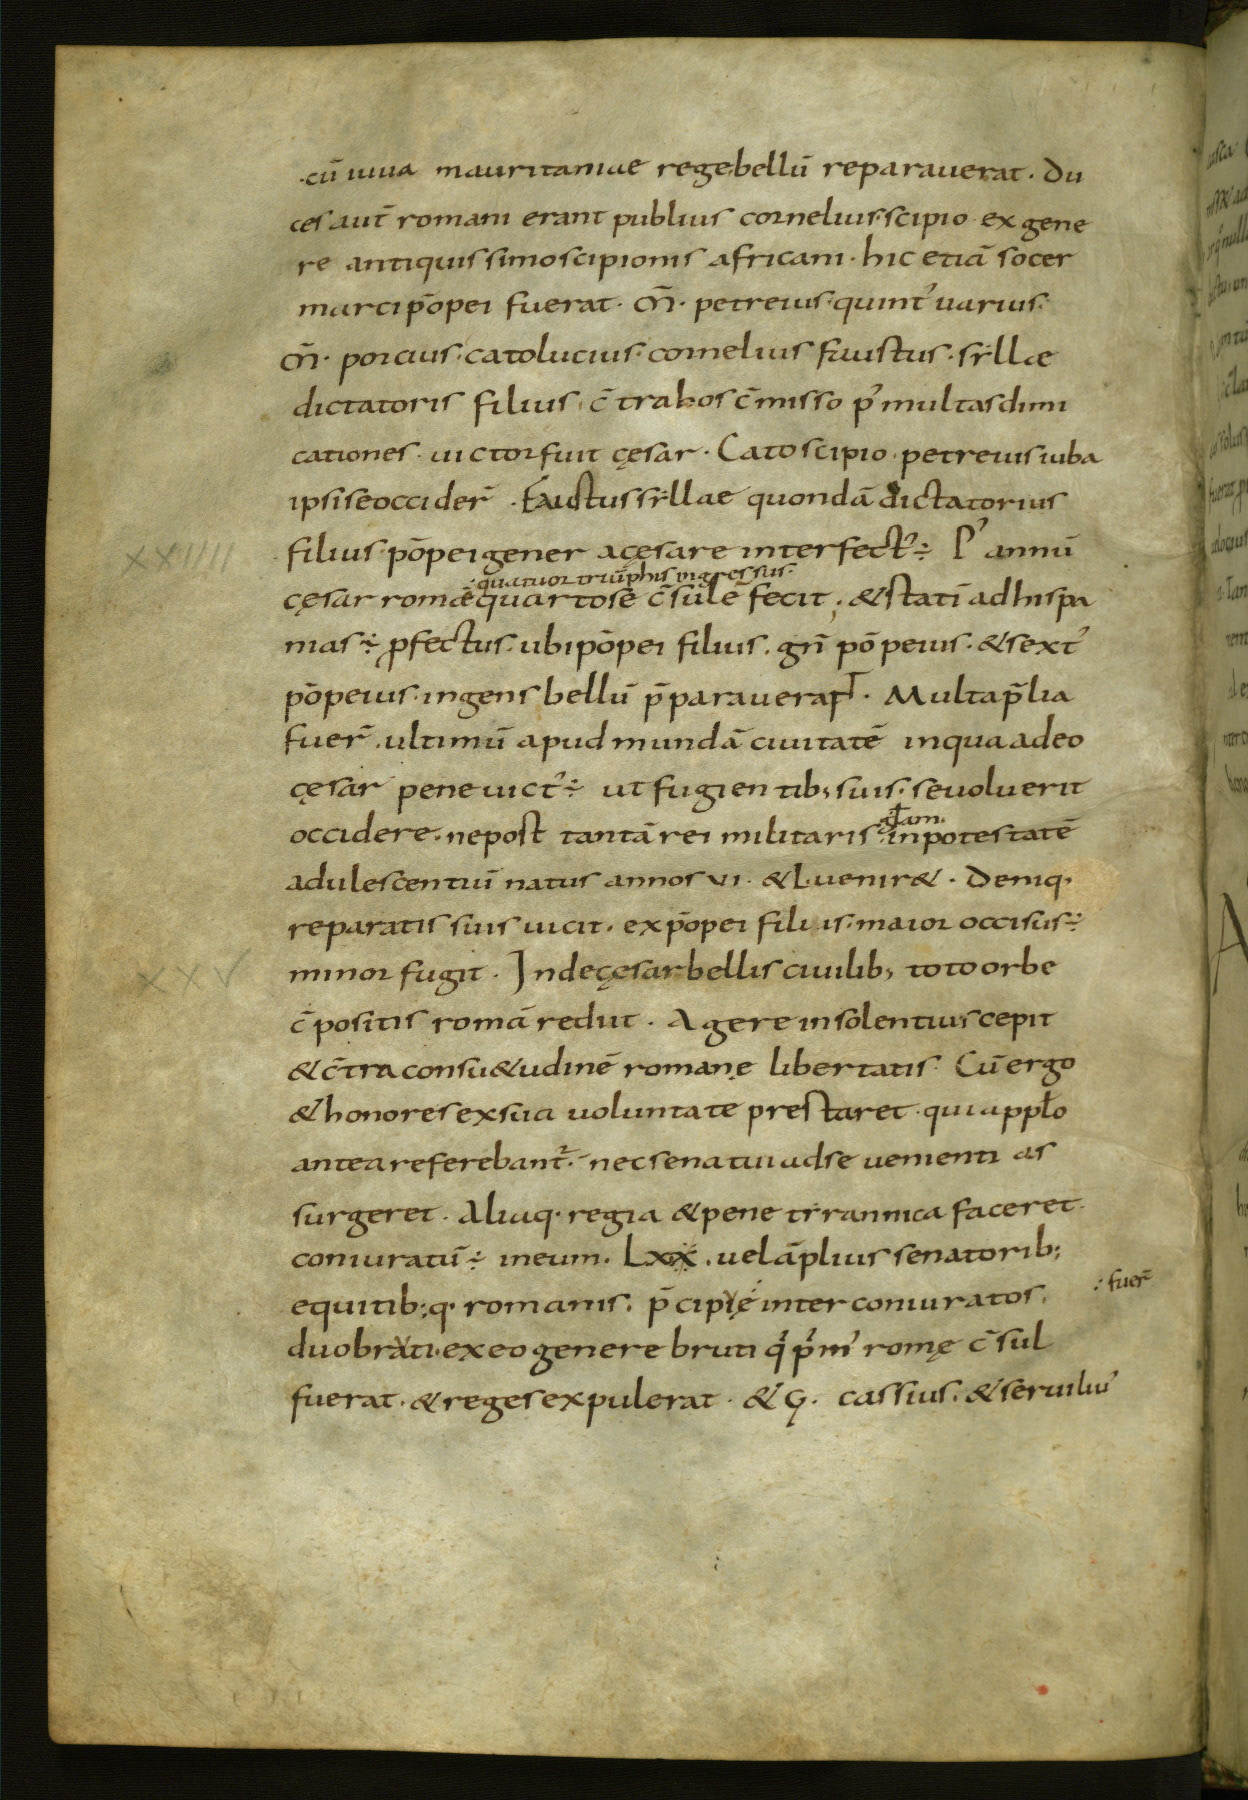 ·cū iuua mauritaniae rege bellū reparauerat · Du
ces aut̄ romani erant publius cornelius·scipio ex gene
re antiquissimo scipionis africani · hic etiā socer
marci pōpei fuerat · M̄ · petreius · quint' uarius ·
M̄ · porcius · cato lucius · cornelius faustus · syllae
dictatoris filius · c̄tra hos c̄misso p' multas dimi
cationes · uictor fuit cęsar · Cato scipio · petreius iuba
ipsi se occider̄ · Faustus syllae quondā dictatorius
filius · pōpei gener a cęsare interfect' ÷ P' annū
XXIIII
·quatuor triūphis ingressus·
cęsar romę quarto se c̄sulē fecit · & statī ad hispa
nias ÷ pfectus · ubi pōpei filius · gn̄ pōpeius · & sext'
pōpeius · ingens bellū p̄parauerat · Multa p̄lia
fuer̄ · ultimū apud mundā ciuitatē in qua adeo
cęsar pene uict' ÷ ut fugientib; suis · se uoluerit
occidere · ne post tantā rei militaris in potestatē
głam·
adulescentiū natus annos VI · & L uenir& · Deniq·
reparatis suis uicit · ex pōpei filiis · maior occisus ÷
minor fugit · Inde cęsar bellis ciuilib; toto orbe
XXV
c̄positis romā rediit · Agere insolentius cepit
& c̄tra consu&udinē romanę libertatis · Cū ergo
& honores ex sua uoluntate prestaret · qui a ppło
antea referebant̄ · nec senatui ad se uenienti as
surgeret · Aliaq· regia & pene tyrannica faceret ·
coniuratū ÷ in eum · LXX · uel āplius senatorib;
equitib; q· romanis · p̄cipue inter coniuratos ·
: fuer̄
duo bruti · ex eo genere bruti q' p'm' romę c̄sul
fuerat · & reges expulerat · & G · cassius · & seruiliu'